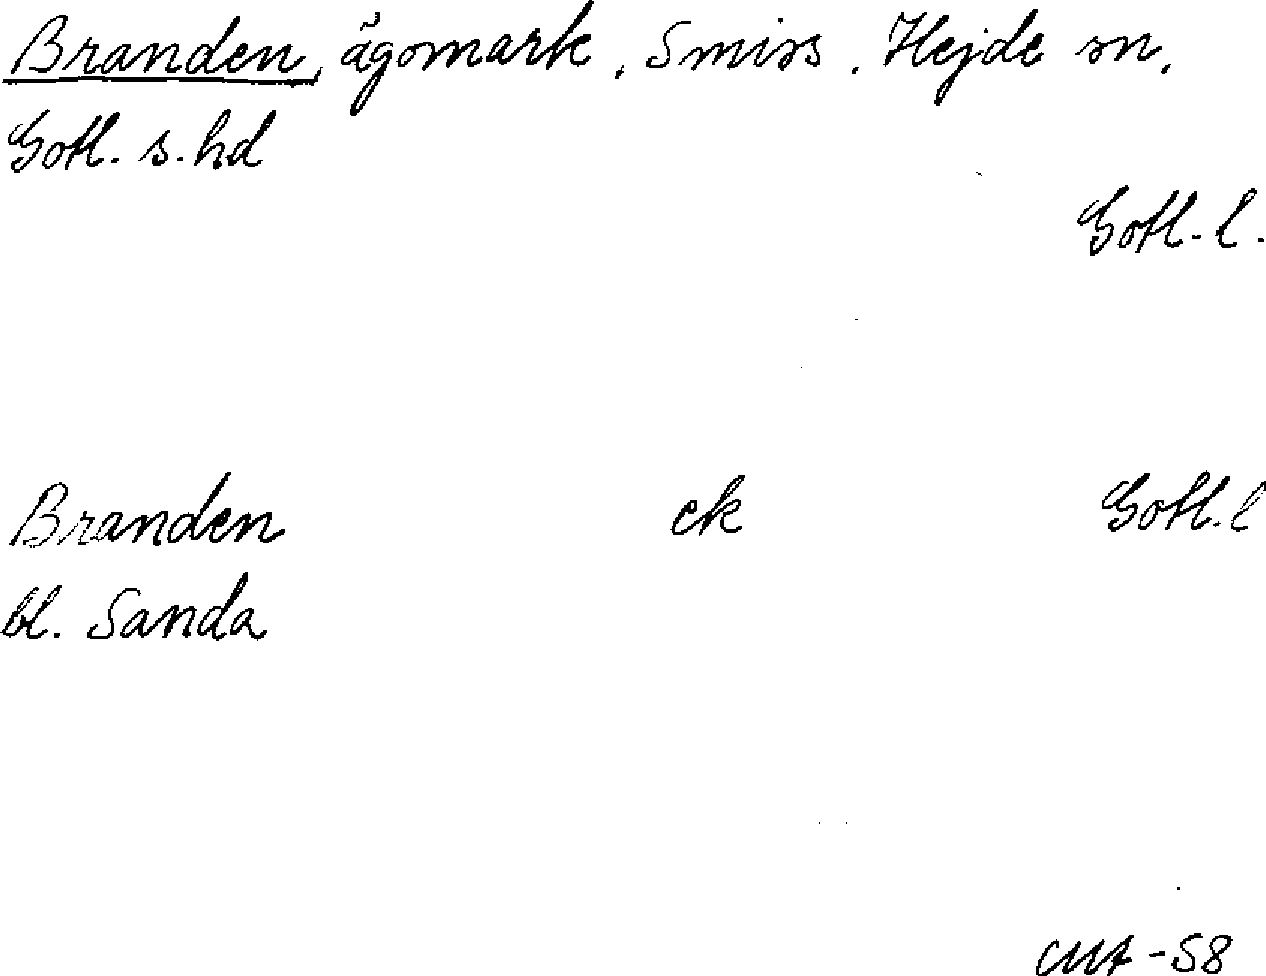 Branden, ägomark, Smiss, Hejde sn,
Gotl. s. hd
Gotl. l.
Branden ek Gotl. l
bl. Sanda
-58